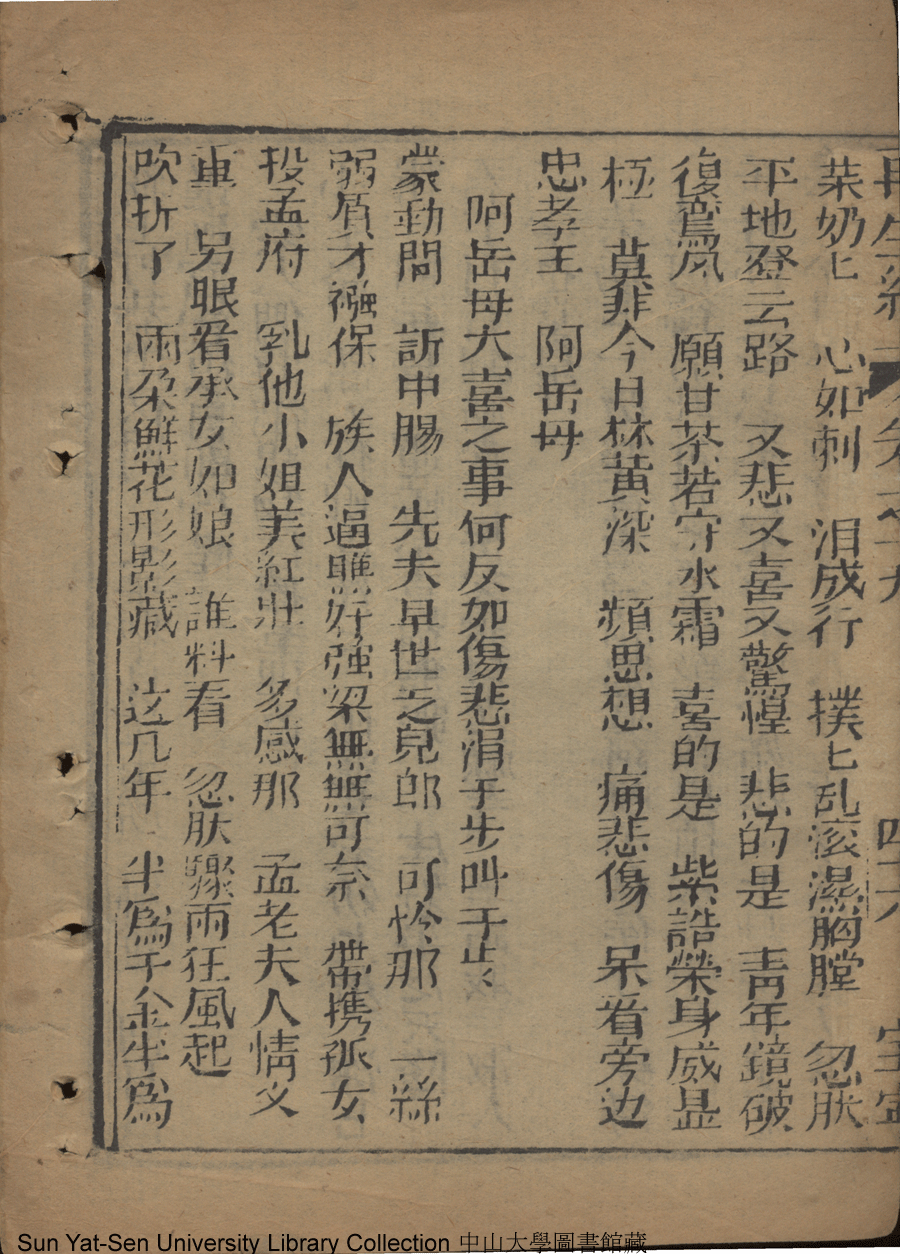 再生緣 卷之十九 四十八
菜奶匕 心如刺 泪成行 撲匕乱滚濕胸膛 忽肰
平地登云路 又悲又喜又驚惶 悲的是 青年鏡破
復鸞凤 願甘茶若守水霜 喜的是 紫誥榮身威显
極 莫非今日林黄深 頻思想 痛悲傷 呆看旁边
忠孝王 阿岳母
阿岳母大喜之事何反如傷悲涓于步叫于止
蒙動問 訴中腸 先夫早世乏兒郎 可怜那 一絲
弱質才襁保 族人逼醮奸強梁無無可奈 帶携孤女
投孟府 乳他小姐美紅壯 多感那 孟老夫人情义
重 另眼看承女如娘 誰料看 忽肰驟雨狂風起
吹折了 兩朶鮮花形影藏 这几年 半為千金半為
Sun Yat-Sen University Library Collection 中山大學圖書館藏